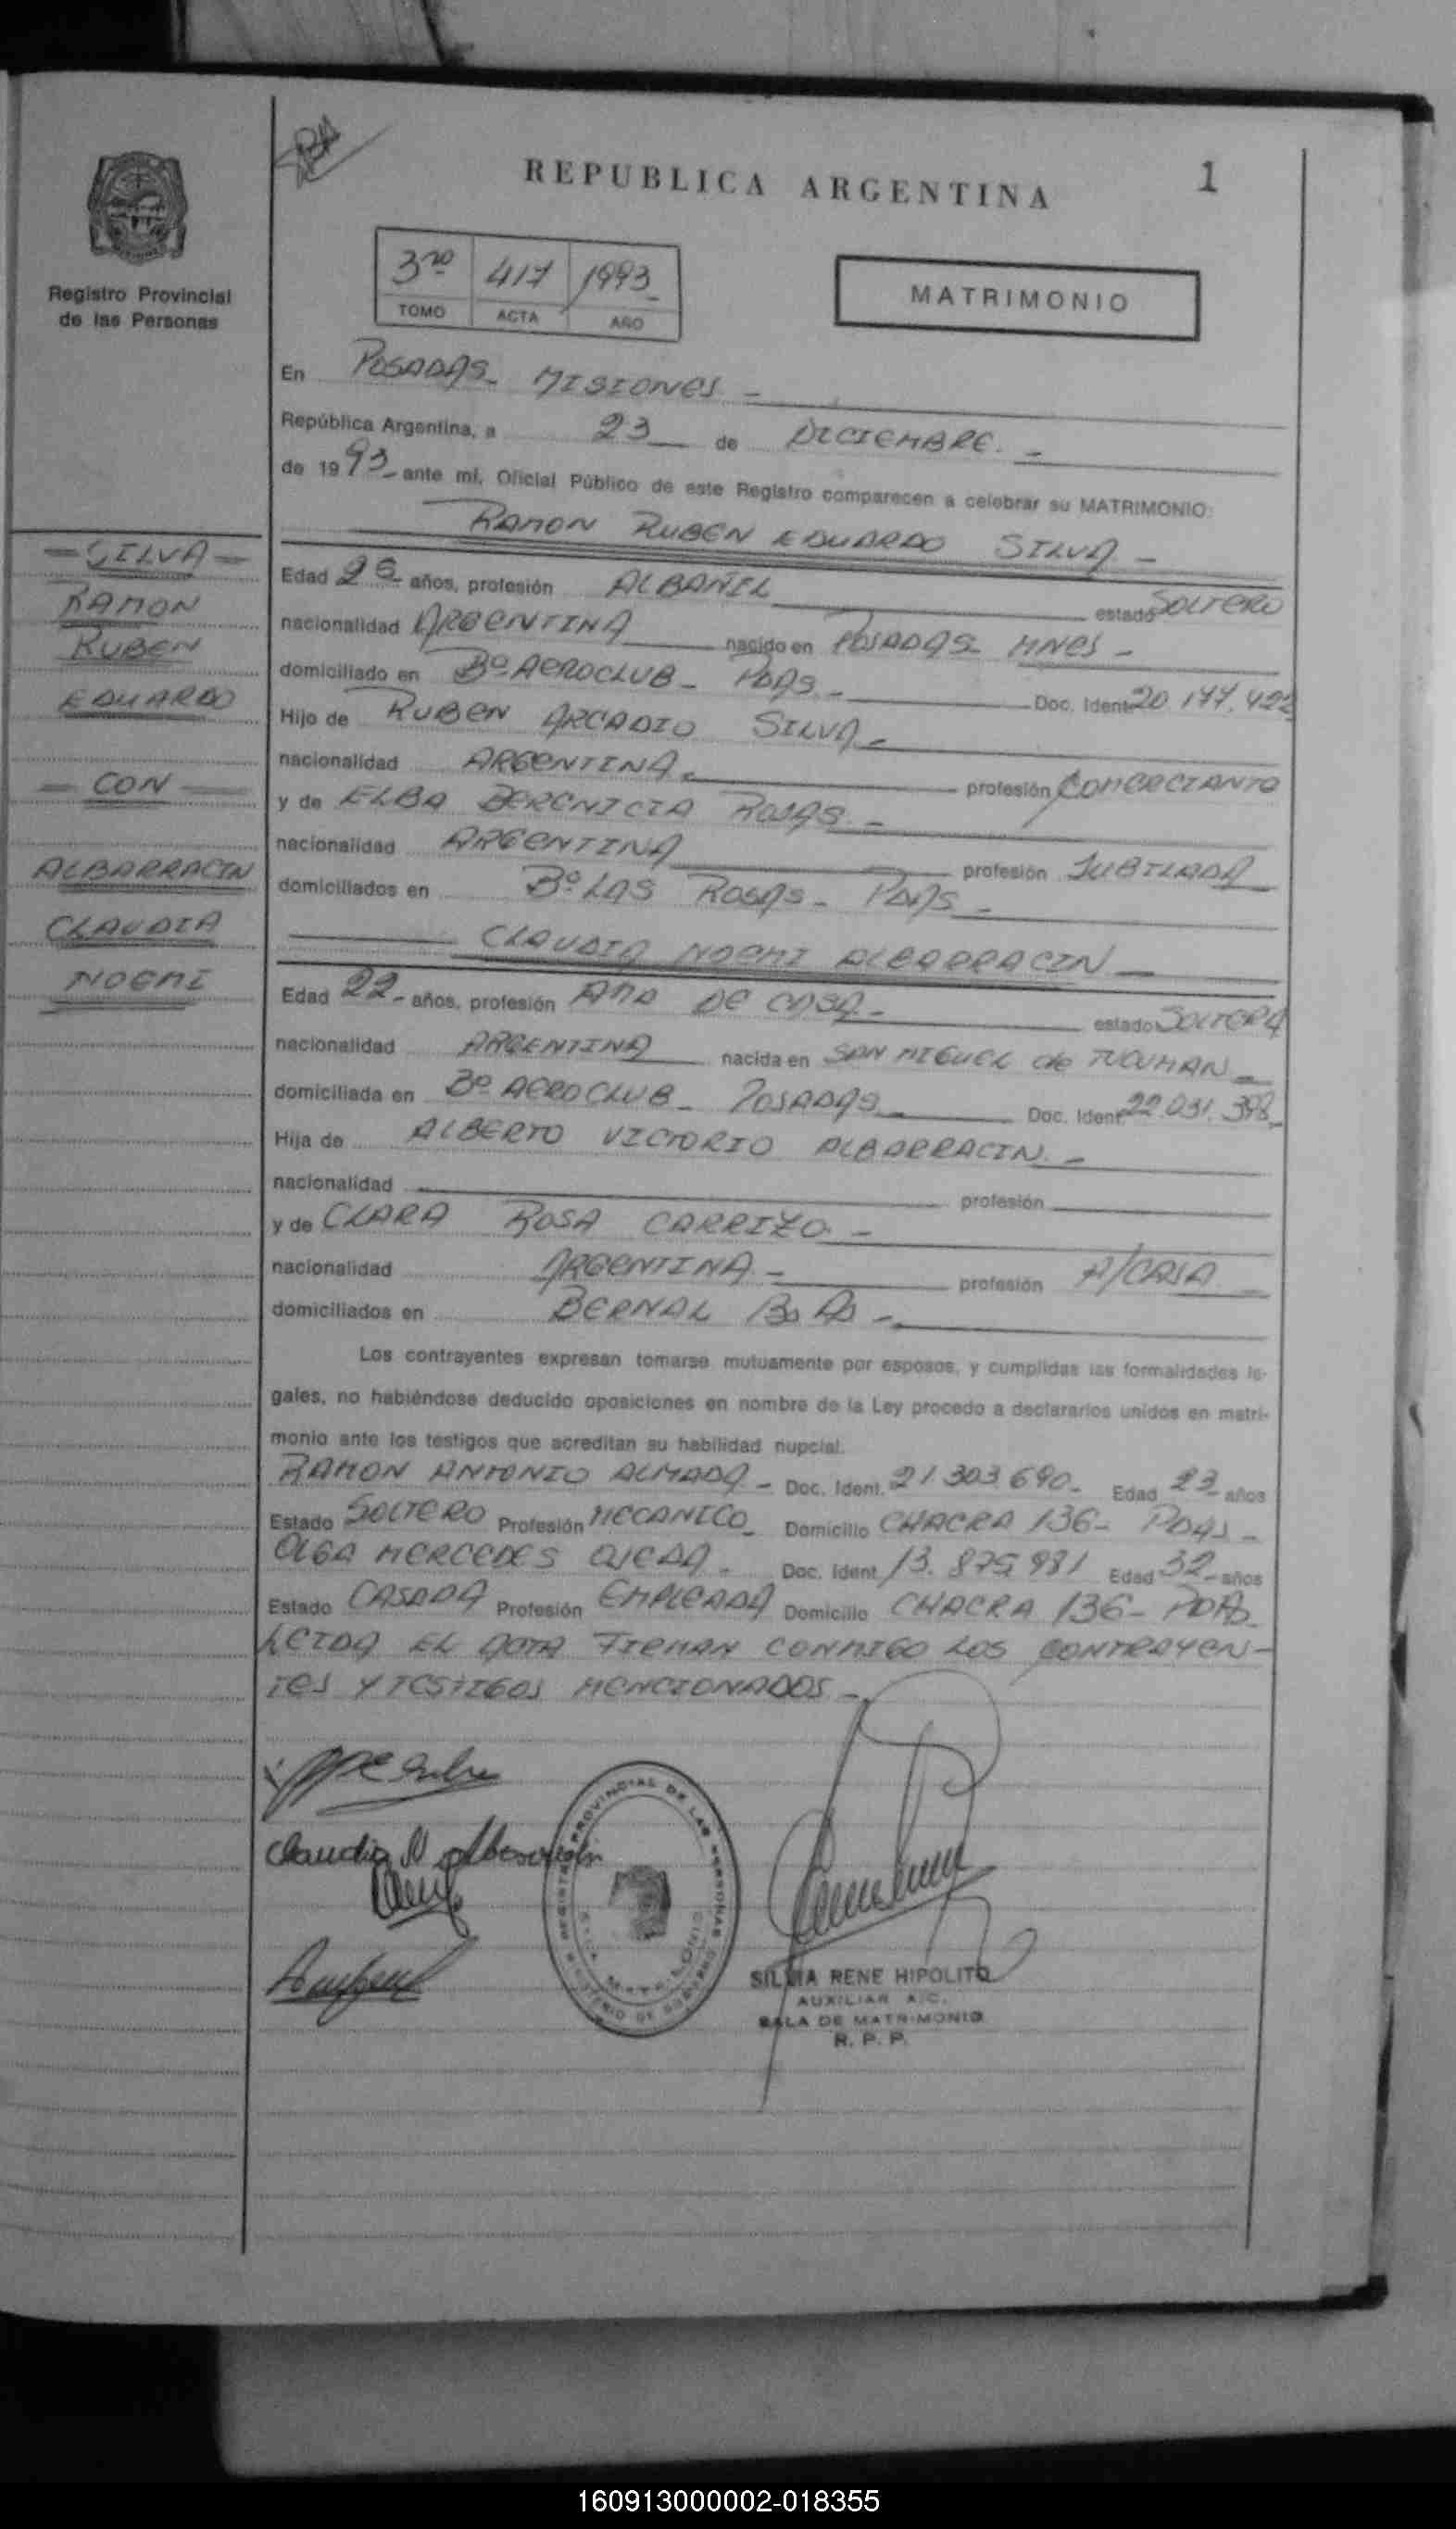 REPUBLICA ARGENTINA
1
Registro Provincial
de las Personas
3ro 417 1993
TOMO ACTA AÑO
MATRIMONIO
En POSADAS - MISIONES -
República Argentina, a 23 de DICIEMBRE. -
de 1993 - ante mí, Oficial Público de este Registro comparecen a celebrar su MATRIMONIO:
RAMON RUBEN EDUARDO SILVA -
- SILVA -
RAMON
RUBEN
EDUARDO
- CON -
ALBARRACIN
CLAUDIA
NOEMI
Edad 26 - años, profesión ALBAÑIL estado SOLTERO
nacionalidad ARGENTINA nacido en POSADAS MNES -
domiciliado en Bº AEROCLUB - PDAS. - Doc. Ident. 20.177.422
Hijo de RUBEN ARCADIO SILVA -
nacionalidad ARGENTINA - profesión COMERCIANTE
y de ELBA BERENICIA ROJAS -
nacionalidad ARGENTINA profesión JUBILADA
domiciliados en Bº LAS ROSAS - PDAS -
CLAUDIA NOEMI ALBARRACIN -
Edad 22 - años, profesión AMA DE CASA - estado SOLTERA
nacionalidad ARGENTINA nacida en SAN MIGUEL de TUCUMAN -
domiciliada en Bº AEROCLUB - POSADAS - Doc. Ident. 22.031.398 -
Hija de ALBERTO VICTORIO ALBARRACIN. -
nacionalidad profesión
y de CLARA ROSA CARRIZO - -
nacionalidad ARGENTINA - profesión A/CASA
domiciliados en BERNAL Bs As -
Los contrayentes expresan tomarse mutuamente por esposos, y cumplidas las formalidades le-
gales, no habiéndose deducido oposiciones en nombre de la Ley procedo a declararlos unidos en matri-
monio ante los testigos que acreditan su habilidad nupcial.
RAMON ANTONIO ALMADA - Doc. Ident. 21.303.690 - Edad 23 - años
Estado SOLTERO Profesión MECANICO - Domicilio CHACRA 136 - PDAS -
OLGA MERCEDES OJEDA - Doc. Ident. 13.879.981 Edad 32 - años
Estado CASADA Profesión EMPLEADA Domicilio CHACRA 136 - PDAS -
LEIDA EL ACTA FIRMAN CONMIGO LOS CONTRAYEN-
TES Y TESTIGOS MENCIONADOS -
Claudia N Albarracín
REGISTRO PROVINCIAL DE LAS PERSONAS
MINISTERIO DE GOBIERNO
SILVIA RENE HIPOLITO
AUXILIAR A/C.
SALA DE MATRIMONIO
R. P. P.
160913000002-018355